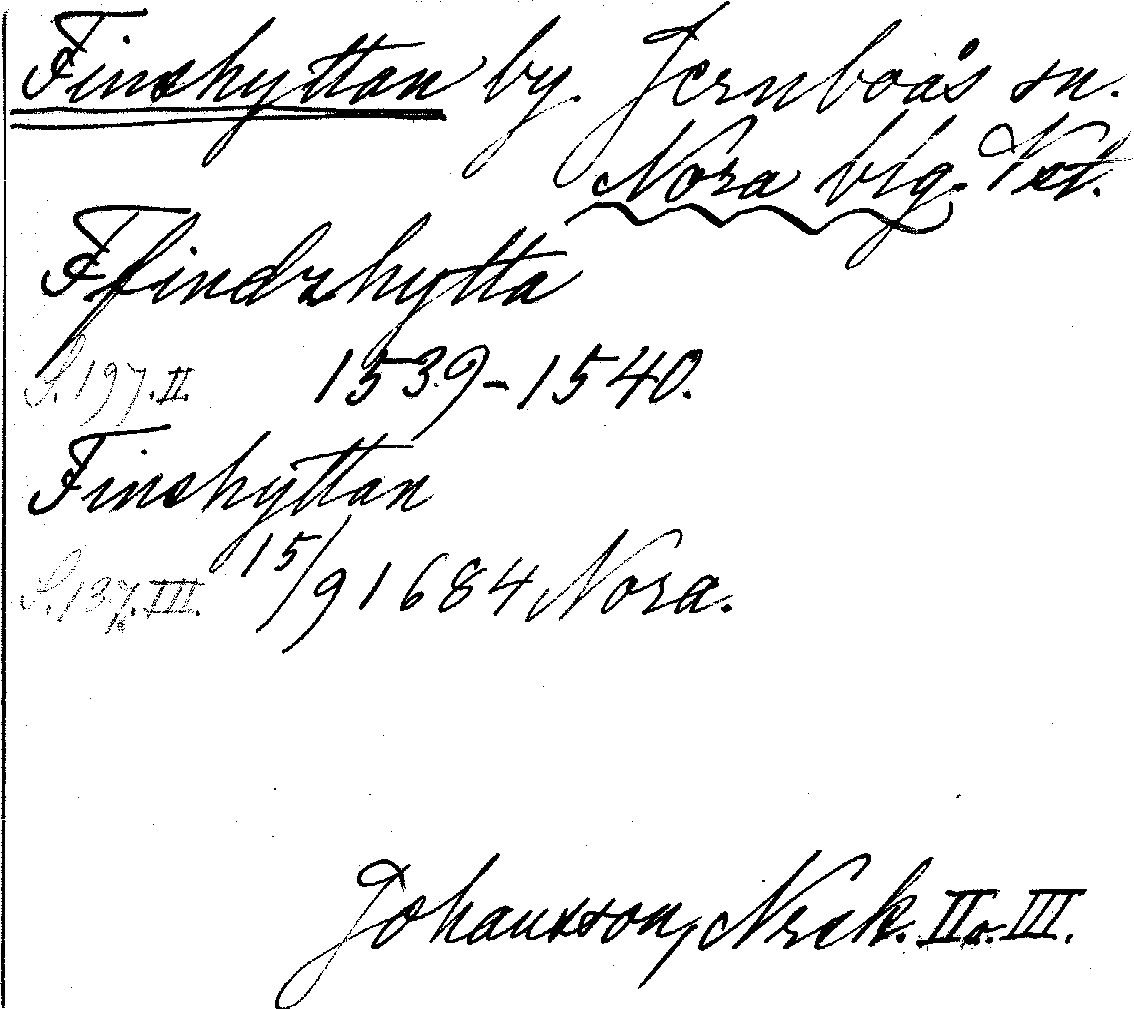 Finshyttan by. Jernboås sn.
Nora blg. Vst.
Ffindzhytta
S. 197. II. 1539-1540.
Finshyttan
S. 137. III. 15/9 1684 Nora.
Johansson, Nrsk. II o. III.